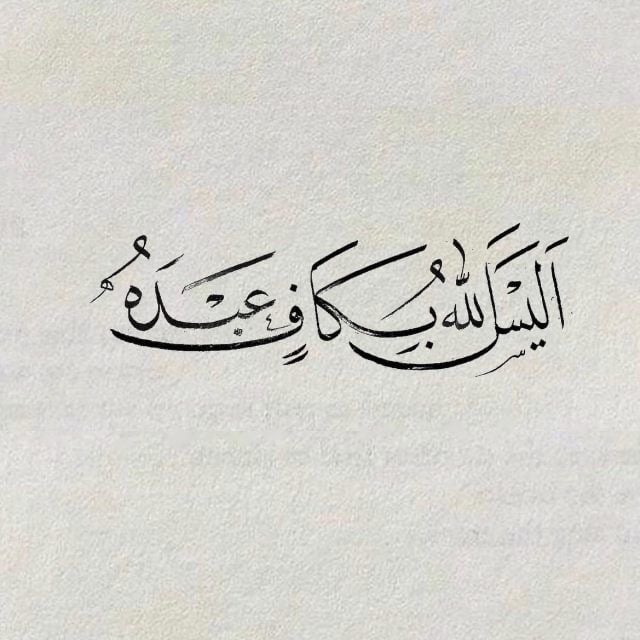 اَلَيْسَ اللهُ بِكَافٍ عَبْدَهُ